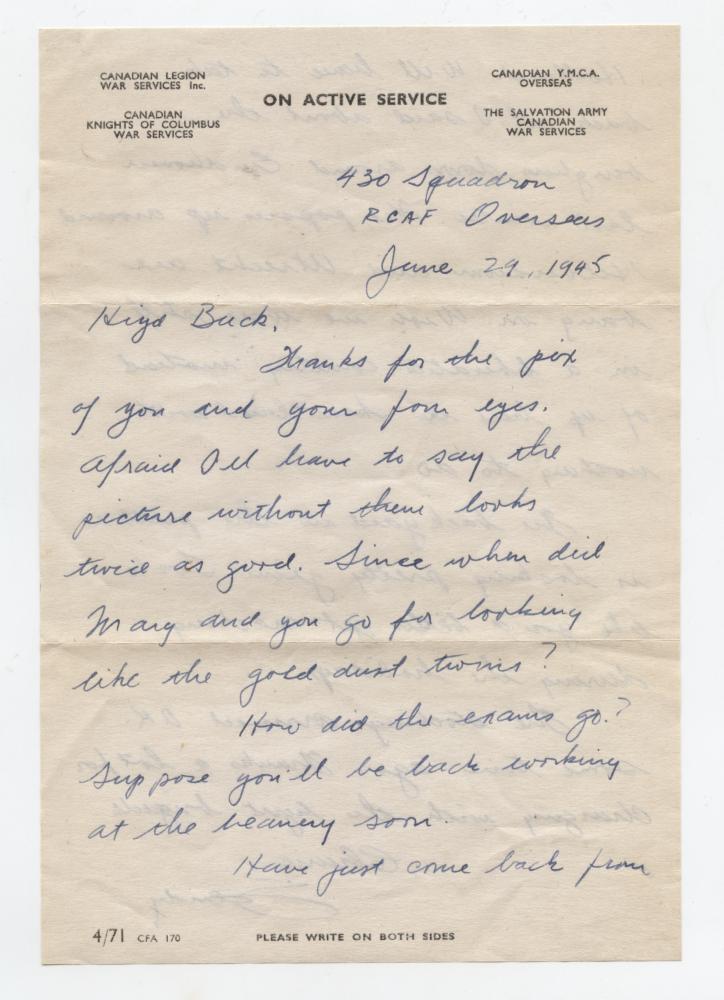 CANADIAN LEGION
WAR SERVICES Inc.
CANADIAN
KNIGHTS OF COLUMBUS
WAR SERVICES
ON ACTIVE SERVICE
CANADIAN Y.M.C.A.
OVERSEAS
THE SALVATION ARMY
CANADIAN
WAR SERVICES
430 Squadron
RCAF Overseas
June 29, 1945
Hiya Buck,
Thanks for the pix
of you and your four eyes.
Afraid I'll have to say the
picture without them looks
twice as good. Since when did
Mary and you go for looking
like the gold dust twins?
How did the exams go?
Suppose you'll be back working
at the beanery soon.
Have just come back from
4/71 CFA 170
PLEASE WRITE ON BOTH SIDES